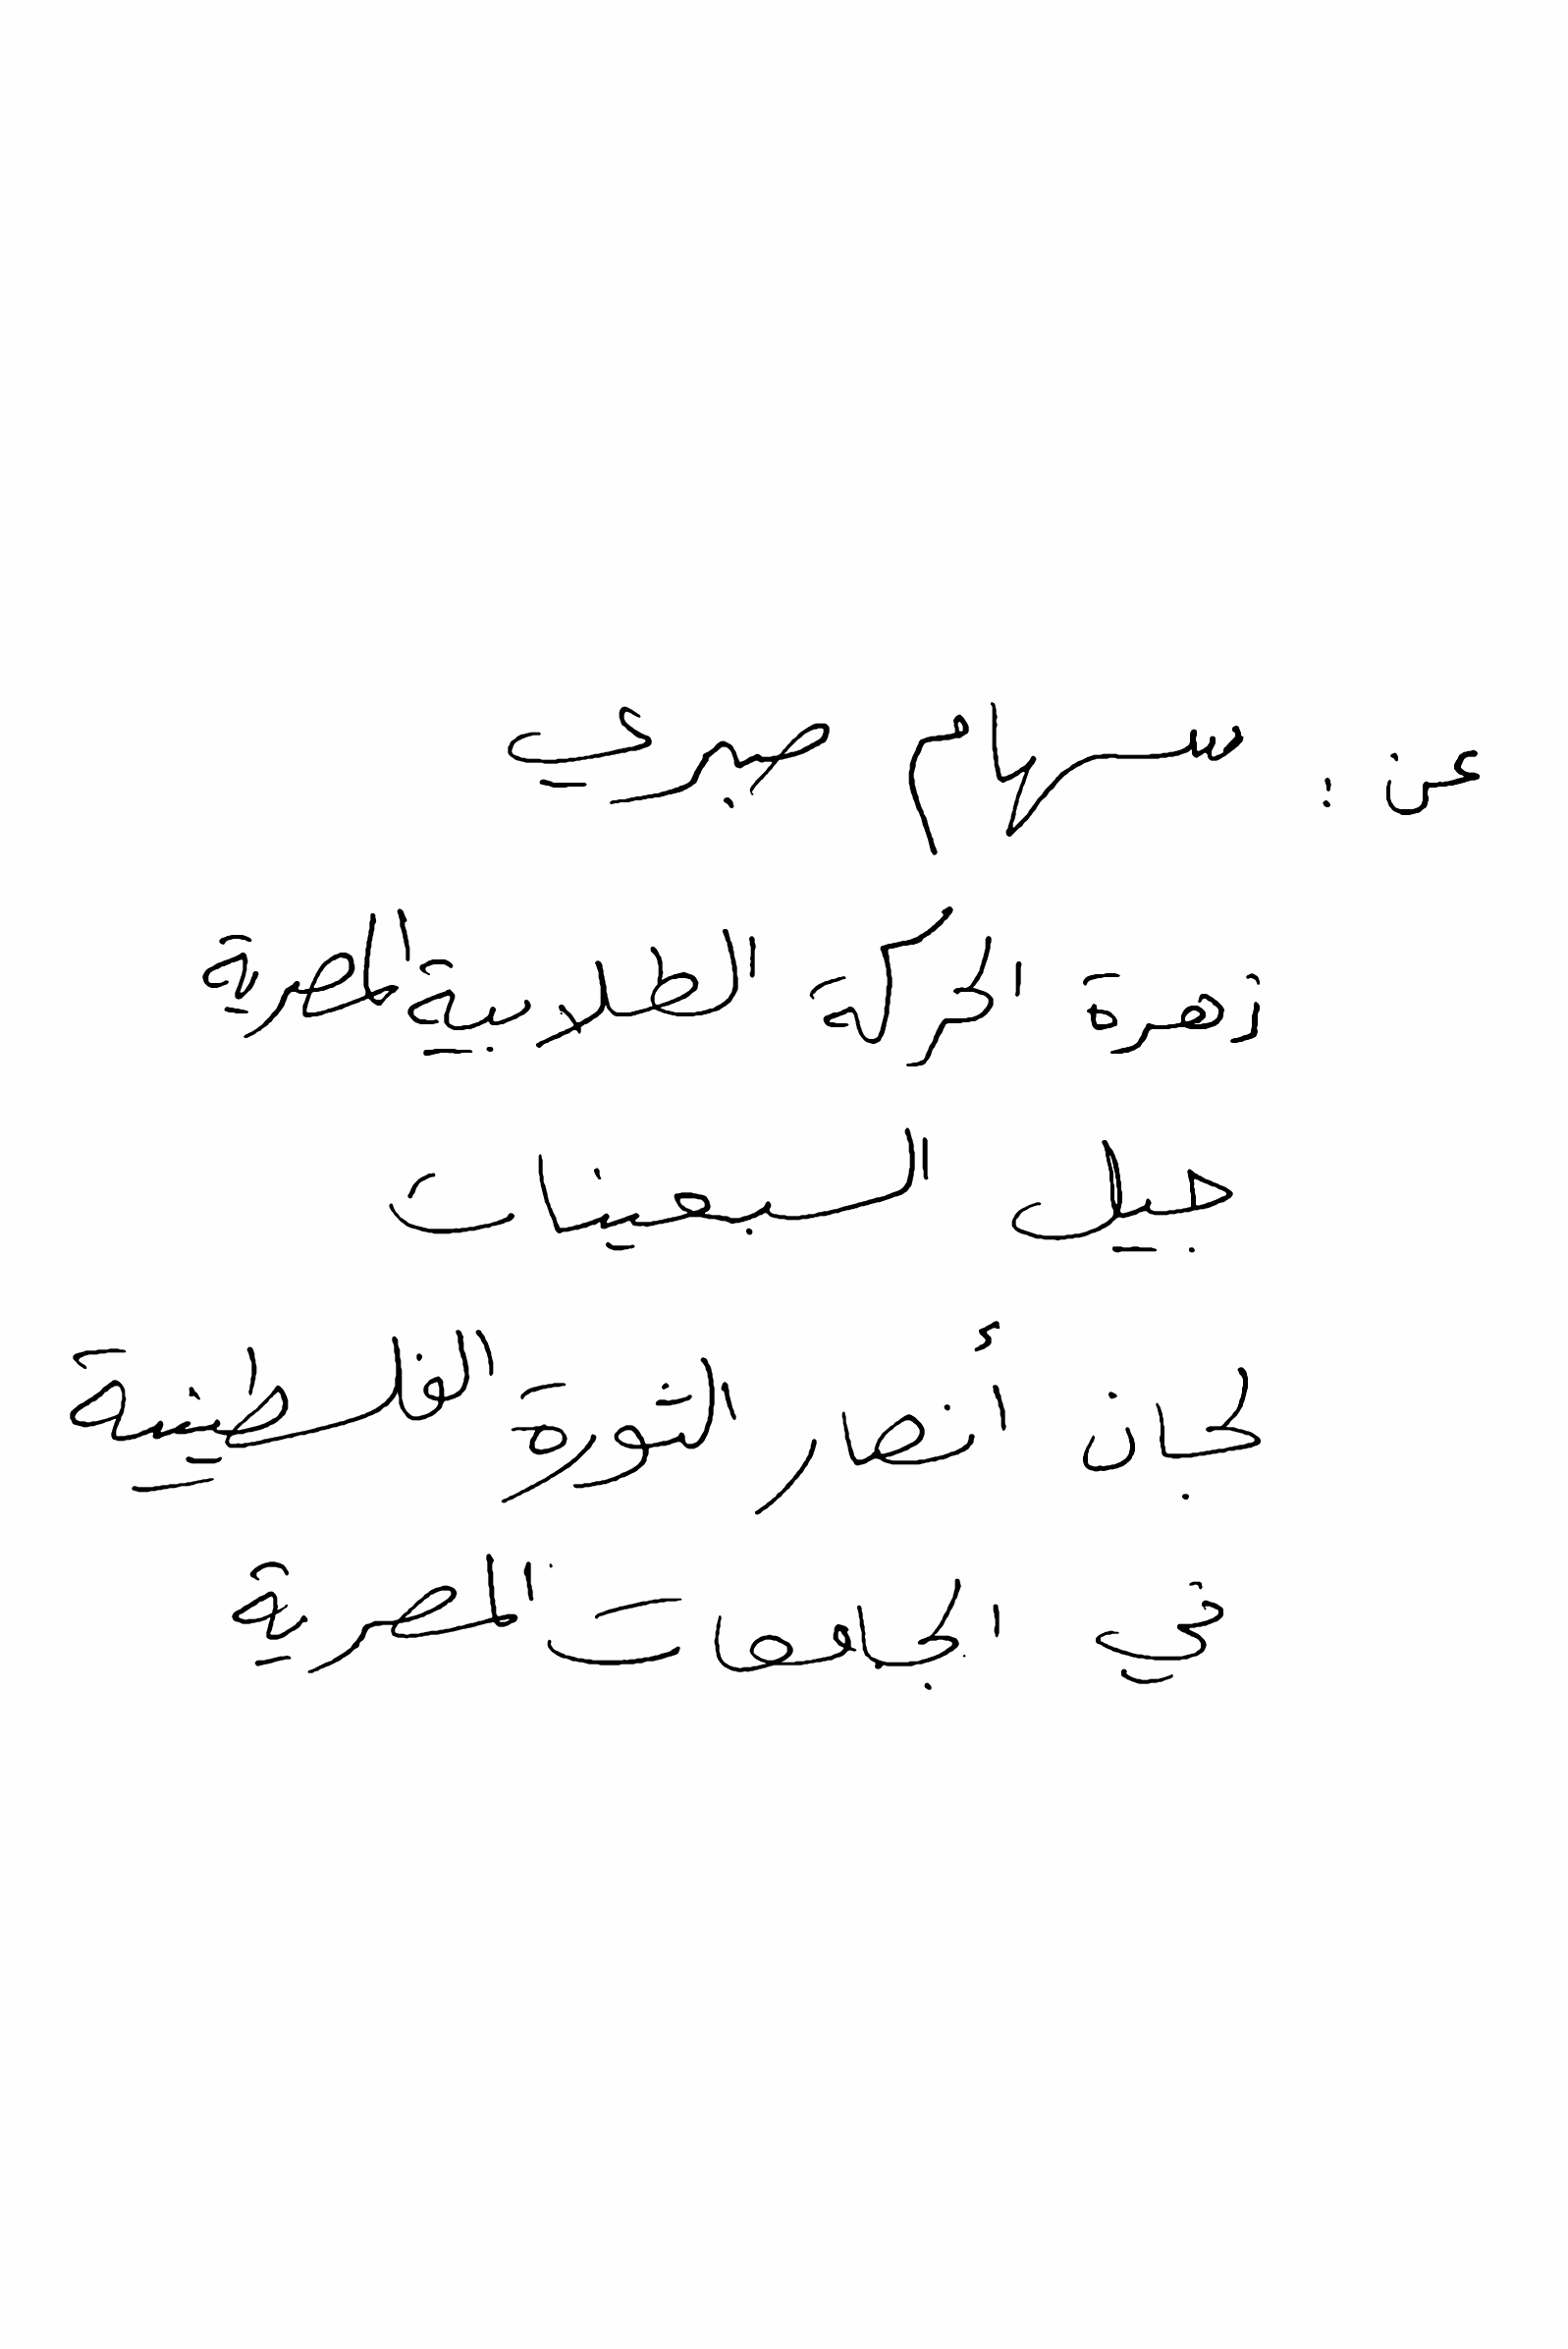 عن : سهام صبري
زهرة الحركة الطلابية المصرية
جيل السبعينات
لجان أنصار الثورة الفلسطينية
في الجامعات المصرية